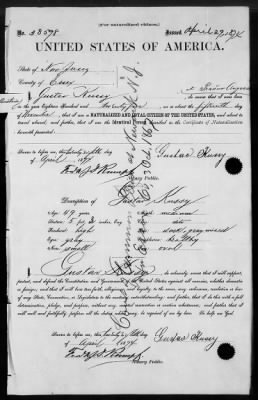 (For naturalized citizen.)
No. 38578 Issued April 29, 1874
UNITED STATES OF AMERICA.
State of New Jersey
County of Essex
I, Gustav Kussy, do swear that I was born
in the year Eighteen Hundred and twenty five on or about the fifteenth day of
December; that I am a NATURALIZED AND LOYAL CITIZEN OF THE UNITED STATES, and about to
travel abroad; and further, that I am the IDENTICAL PERSON described in the Certificate of Naturalization
herewith presented.
Sworn to before me, this twenty eighth day
of April 1874 Gustav Kussy
Notary Public.
Description of Gustav Kussy
Age: 49 years medium
Stature: 5 feet
Forehead: high
Eyes: gray healthy
Nose: small oval
I, Gustav Kussy, do solemnly swear that I will support,
protect, and defend the Constitution and Government of the United States against all enemies, whether domestic
or foreign; and that I will bear true faith, allegiance, and loyalty to the same, any ordinance, resolution or law
of any State, Convention, or Legislature to the contrary notwithstanding; and further, that I do this with a full
determination, pledge, and purpose, without any mental reservation or evasion whatsoever; and further, that I
will well and faithfully perform all the duties which may be required of me by law. So help me God.
Sworn to before me, this twenty eighth day
of April 1874 Gustav Kussy
Notary Public.